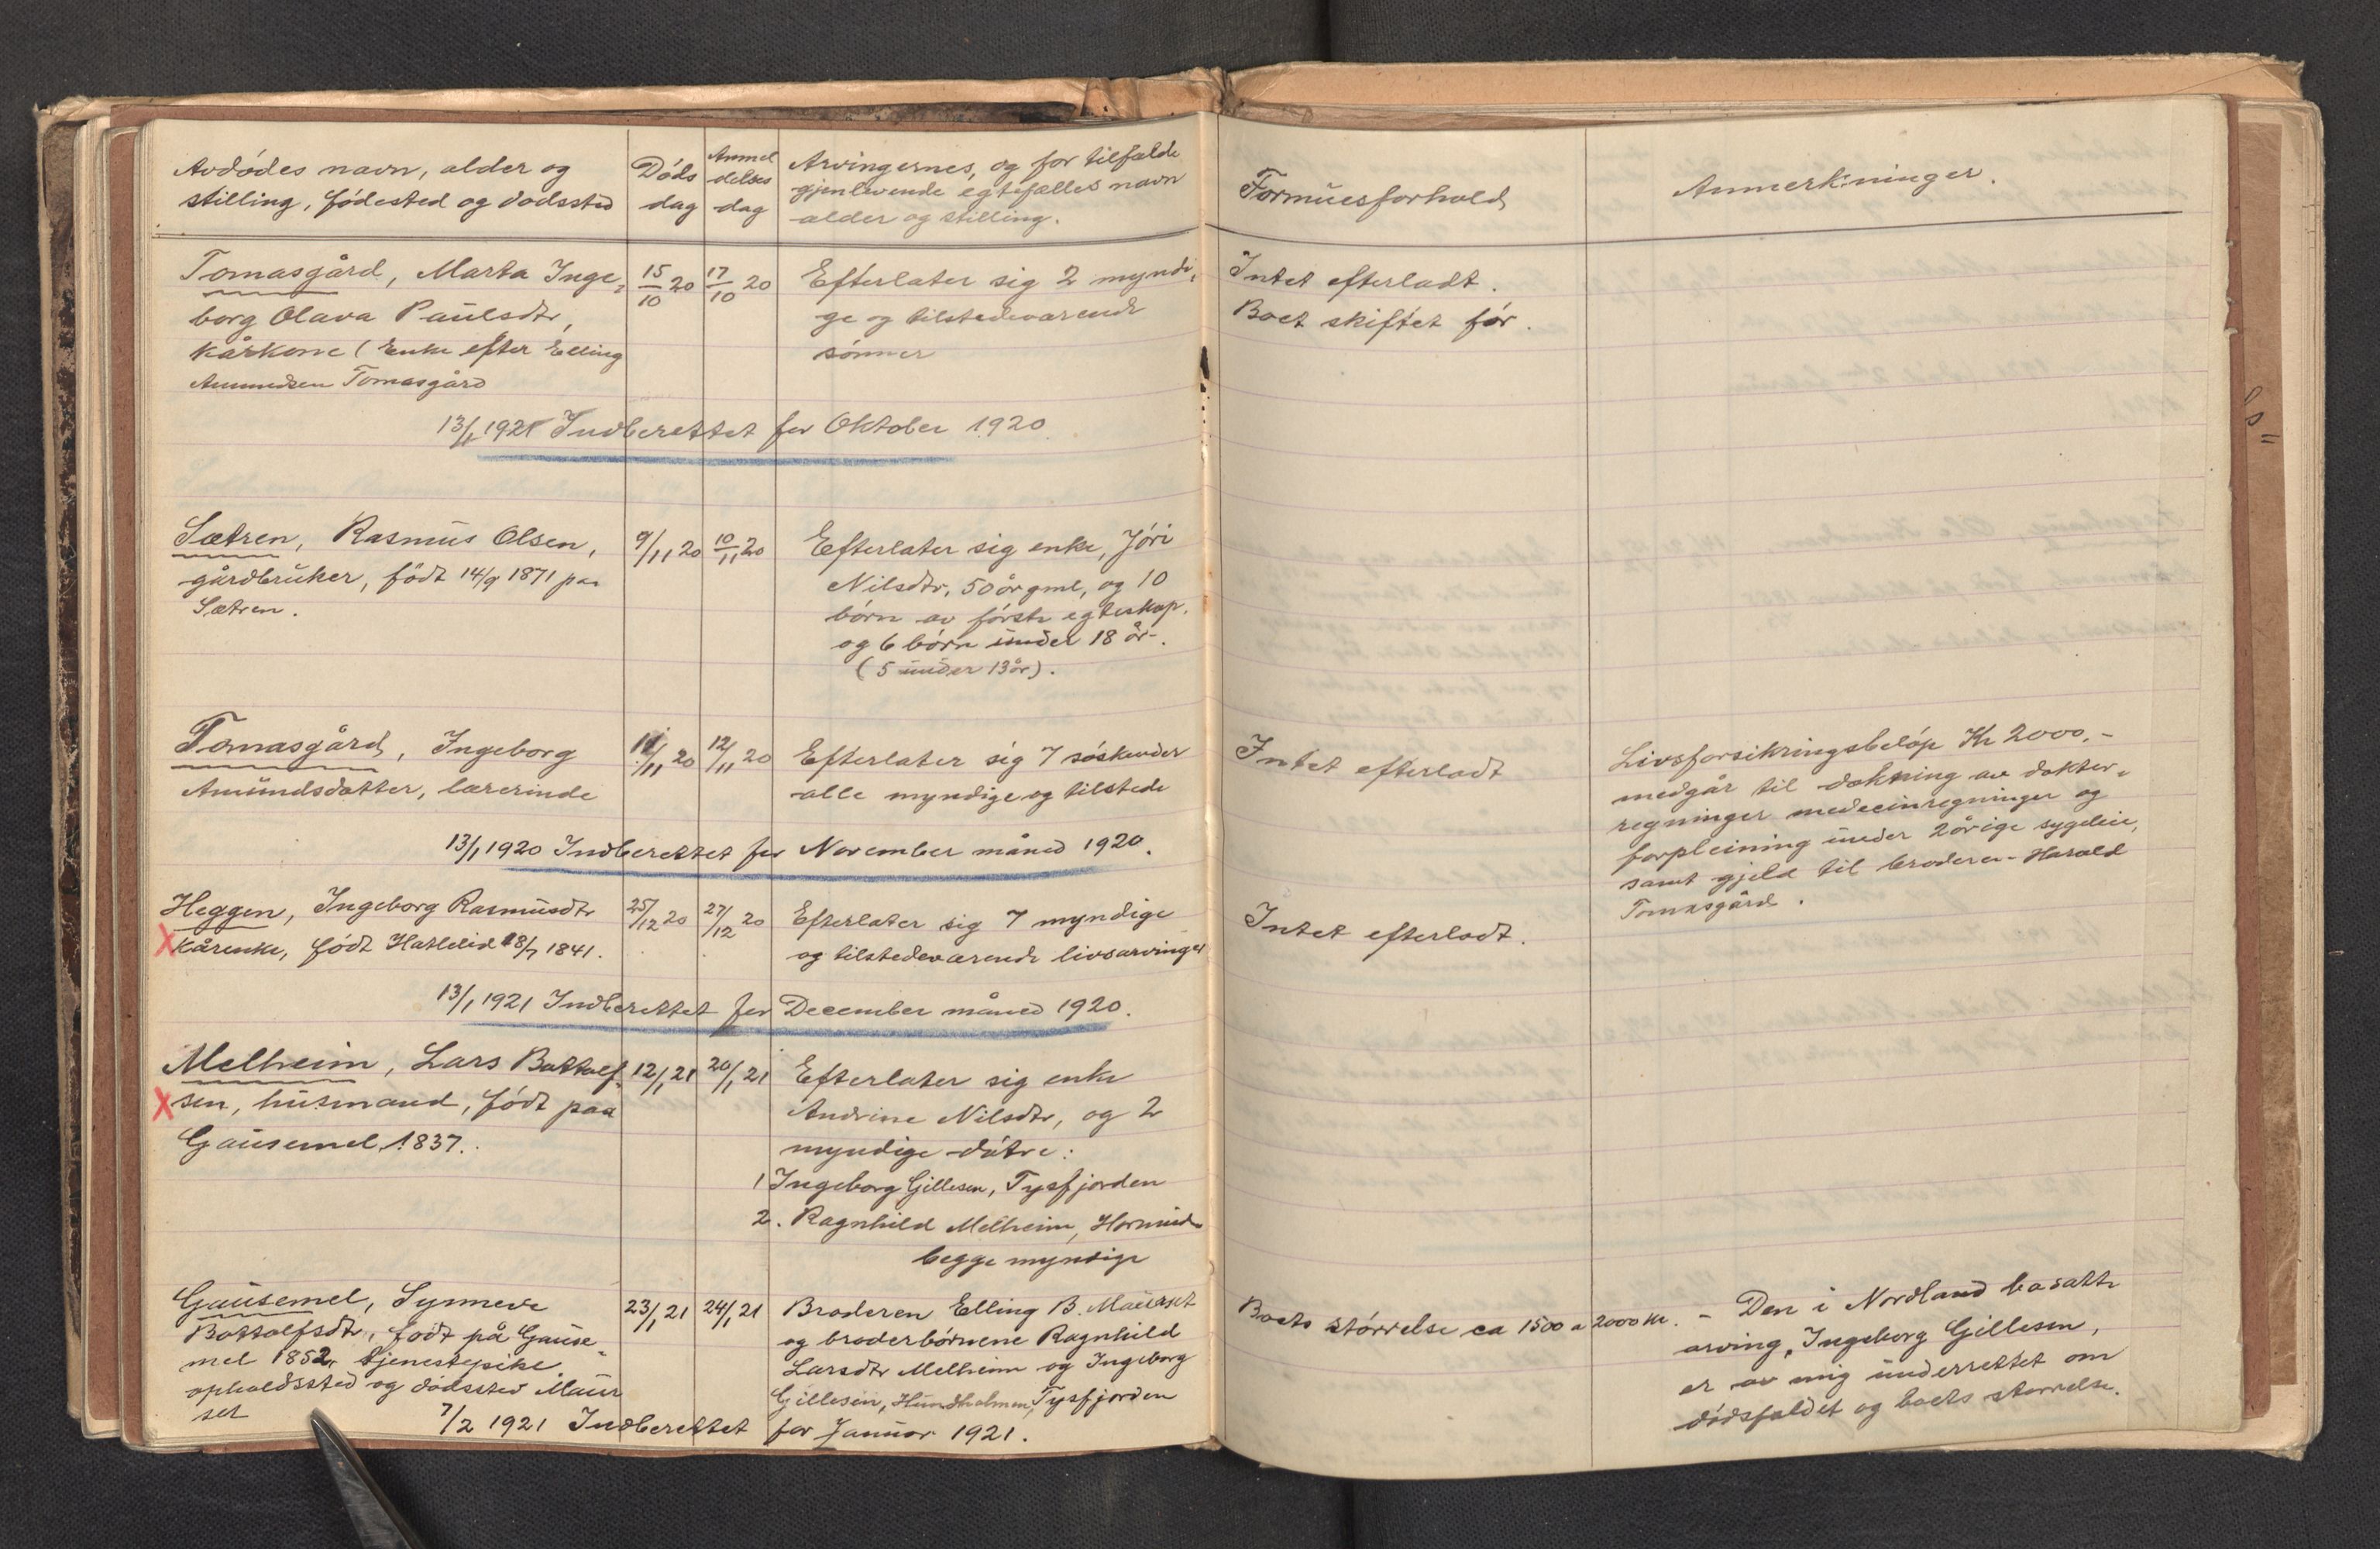 Avdødes navn, alder og
stilling, fødested og dødssted
Døds
dag
Anmel
delses
dag
Arvingernes, og for tilfælde
gjenlevende egtefælles navn
alder og stilling.
Formuesforhold
Anmerkninger.
Tomasgård, Marta Inge-
borg Olava Paulsdtr,
kårkone (Enke efter Elling
Amundsen Tomasgård
15/10 20
17/10 20
Efterlater sig 2 myndi-
ge og tilstedeværende
sønner
Intet efterladt.
Boet skiftet før.
13/1 1921 Indberettet for Oktober 1920
Sætren, Rasmus Olsen,
gårdbruker, født 14/9 1871 paa
Sætren.
9/11 20
10/11 20
Efterlater sig enke, Jøri
Nilsdtr, 50 år gml, og 10
børn av første egteskap.
og 6 børn under 18 år.
(5 under 13 år).
Tomasgård, Ingeborg
Amundsdatter, lærerinde
11/11 20
12/11 20
Efterlater sig 7 søskender
alle myndige og tilstede
Intet efterladt
Livsforsikringsbeløp Kr 2000,-
medgår til dækning av dokter-
regninger medecinregninger og
forpleining under 2årige sygeleie,
samt gjeld til broderen Harald
Tomasgård.
13/1 1920 Indberettet for November måned 1920.
Heggen, Ingeborg Rasmusdtr
kårenke, født Hatlelid 28/7 1841.
25/12 20
27/12 20
Efterlater sig 7 myndige
og tilstedeværende livsarvinger
Intet efterladt.
13/1 1921 Indberettet for December måned 1920.
Melheim, Lars Bottolf-
sen, husmand, født paa
Gausemel 1837.
12/1 21
20/1 21
Efterlater sig enke
Andrine Nilsdtr, og 2
myndige døtre:
1 Ingeborg Gillesen, Tysfjorden
2. Ragnhild Melheim, Hornind-
begge myndige
Gausemel, Synneve
Bottolfsdtr, født på Gause-
mel 1852, tjenestepike
opholdssted og dødssted Maur
set
23/1 21
24/1 21
Broderen Elling B. Maurset
og broderbørnene Ragnhild
Larsdtr Melheim og Ingeborg
Gillesen, Hundholmen, Tysfjorden
Boets størrelse ca 1500 a 2000 kr.
- Den i Nordland bosatte
arving, Ingeborg Gillesen,
er av mig underrettet om
dødsfaldet og boets størrelse.
7/2 1921 Indberettet for Januar 1921.